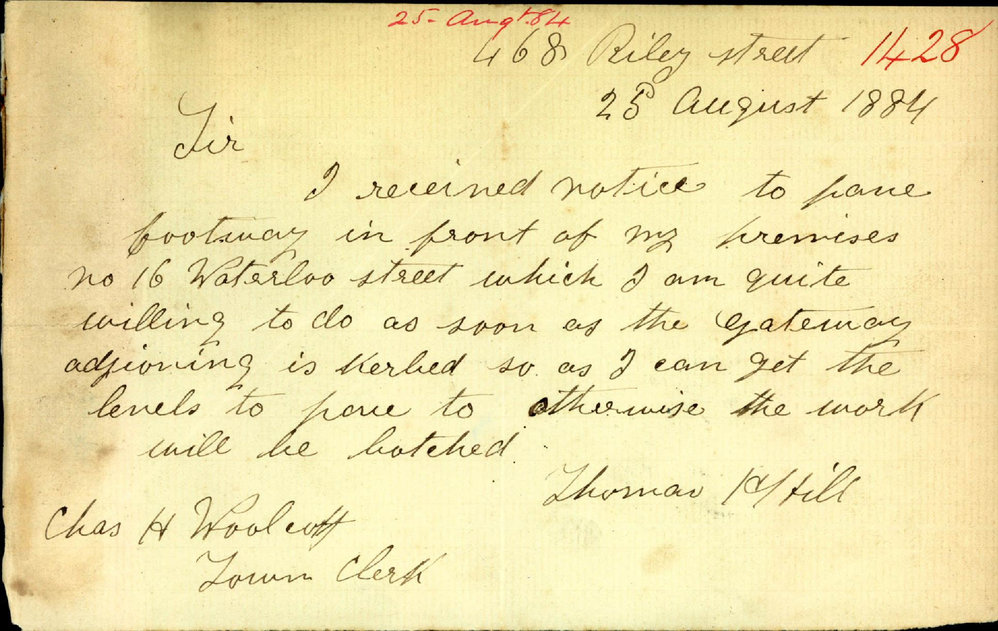 25 Augt. 84
468 Riley street 1428
25 August 1884
Sir
I received notice to pave
footway in front of my premises
no 16 Waterloo street which I am quite
willing to do as soon as the gateway
adjioning is kerbed so as I can get the
levels to pave to otherwise the work
will be botched
Thomas H Hill
Chas H Woolcott
Town Clerk